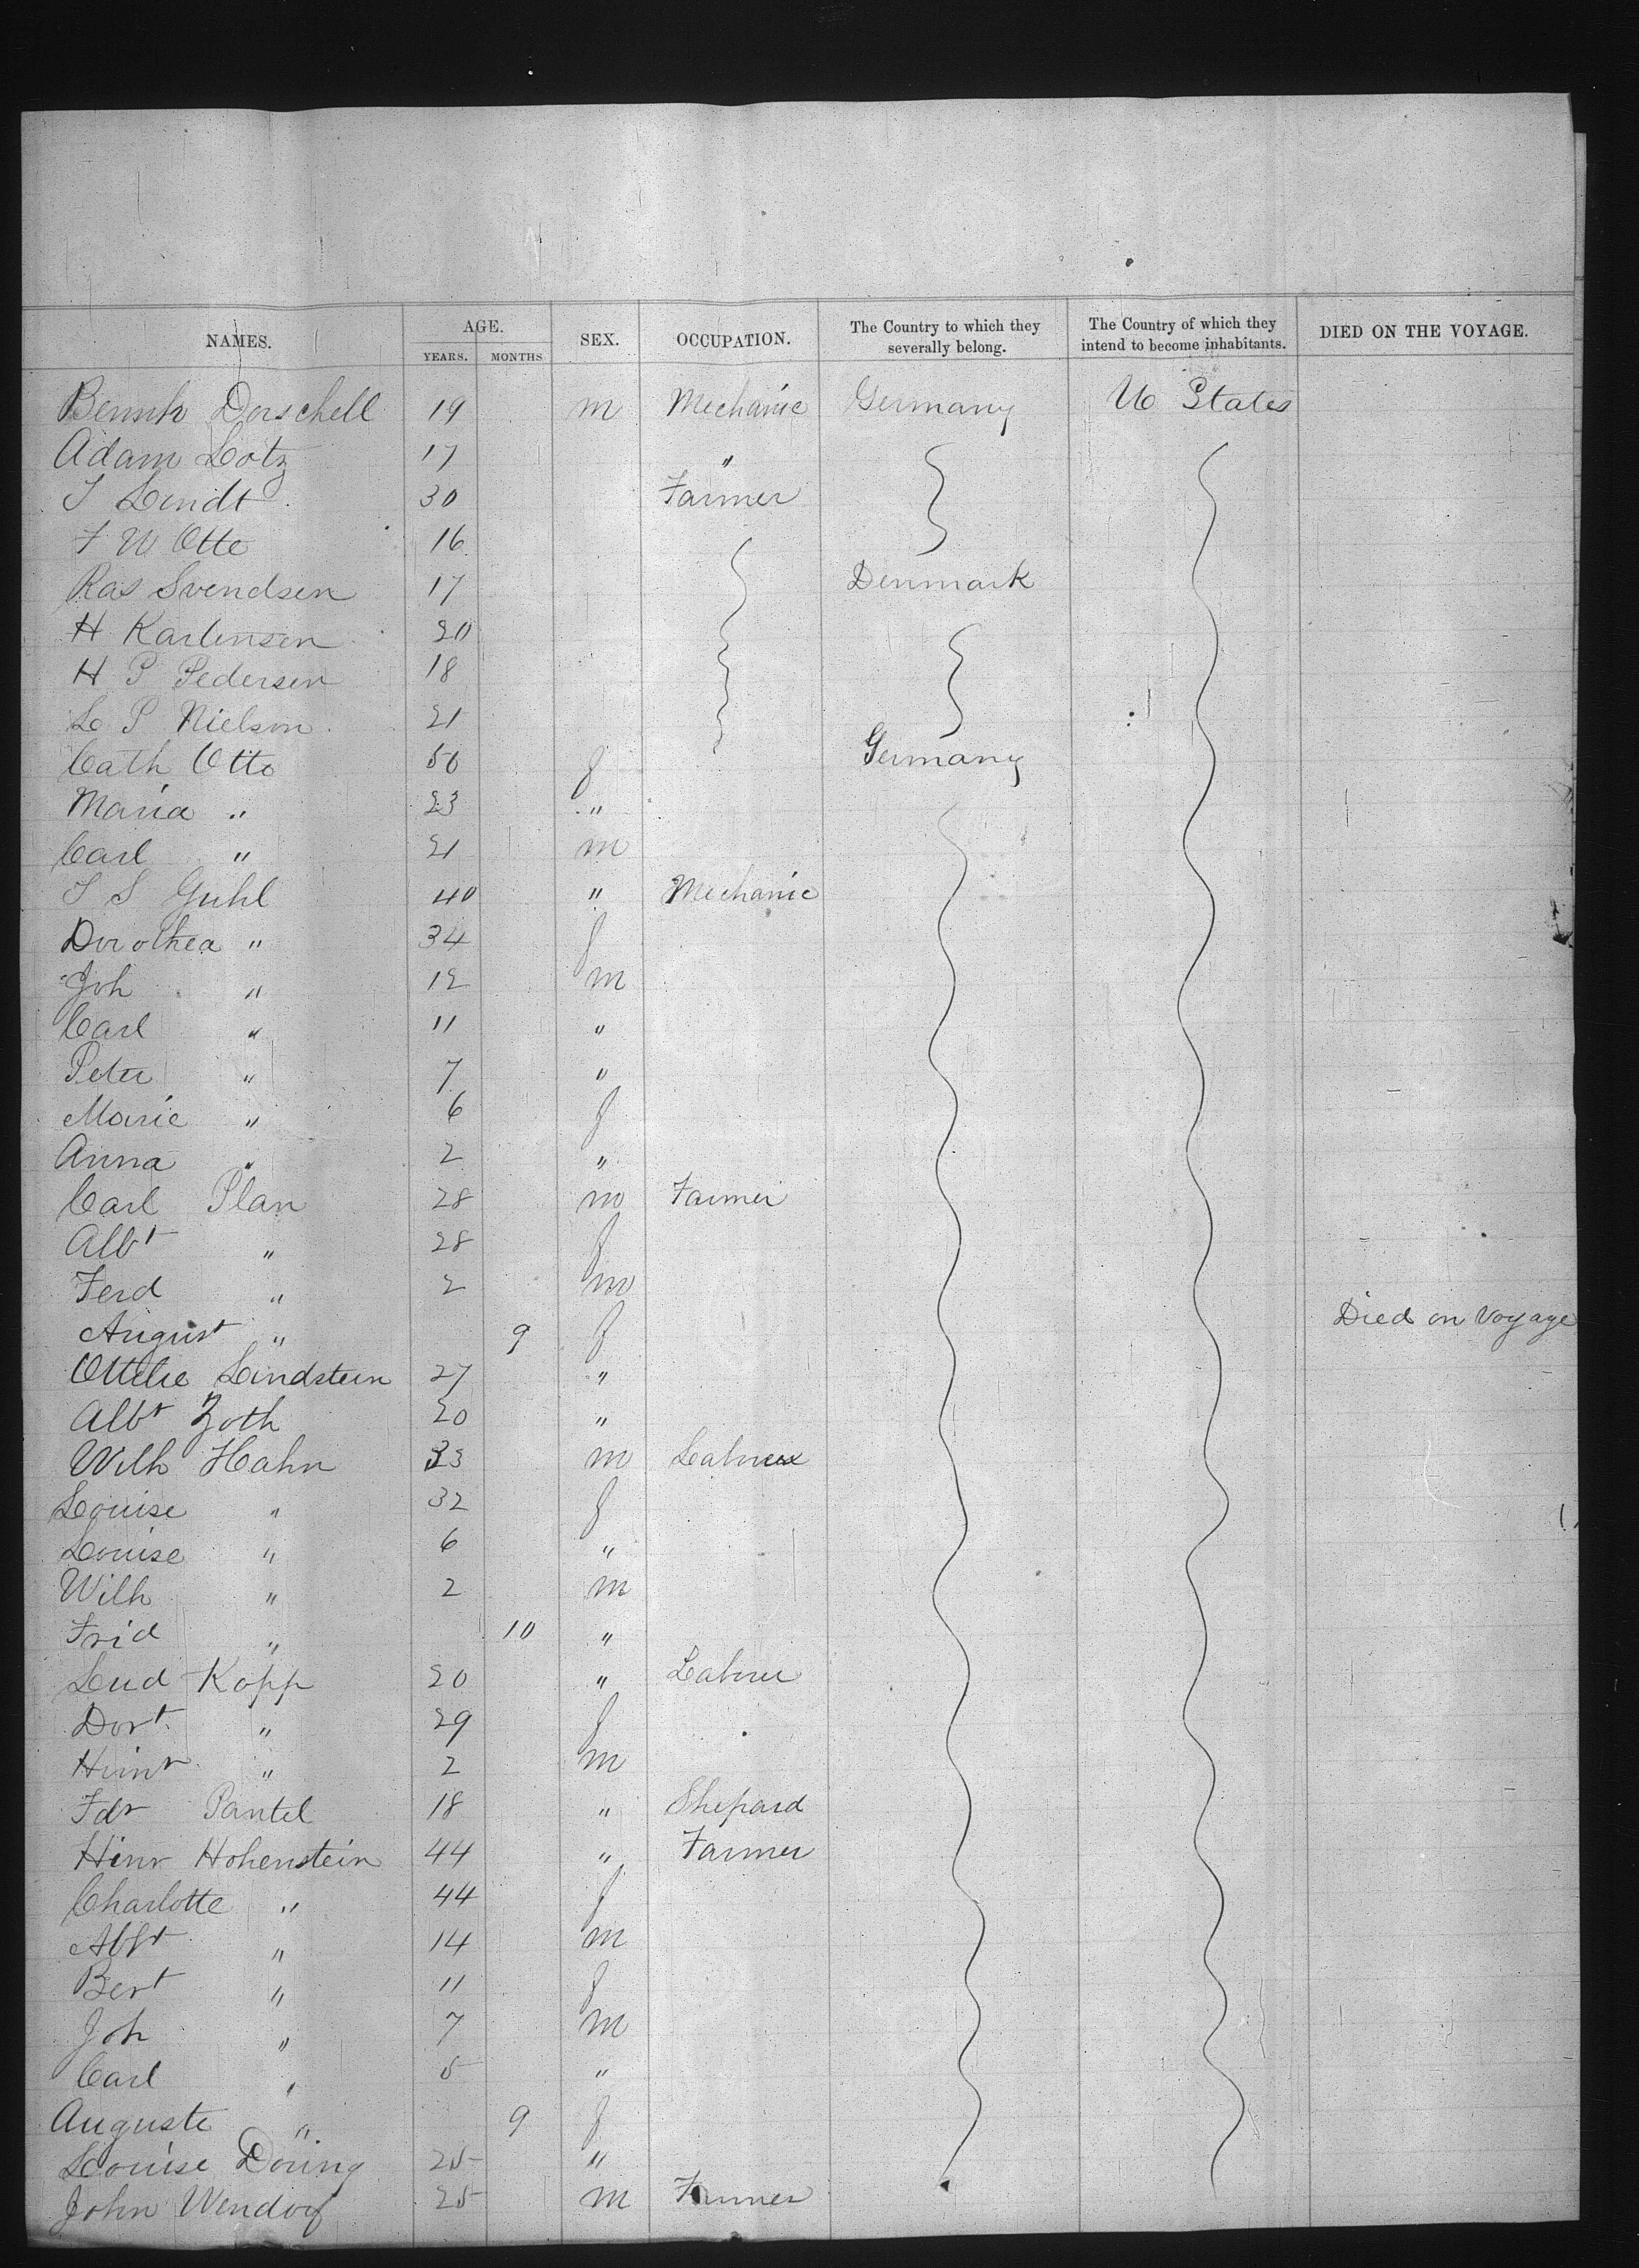 NAMES. AGE. SEX. OCCUPATION. The Country to which they severally belong. The Country of which they intend to become inhabitants. DIED ON THE VOYAGE.
YEARS. MONTHS
Dorschell 19 m Mechanic Germany U States
Adam Lotz 17 "
Lindt 30 Farmer
F W Otte 16
Ras Svendsen 17 Denmark
H Karlensen 20
H P Pedersen 18
L P Nielson 21
Cath Otto 50 f Germany
Maria " 23 "
Carl " 21 m
Guhl 40 " Mechanic
Dorothea " 34 f
Joh " 12 m
Carl " 11 "
Peter " 7 "
Marie " 6 f
Anna " 2 "
Carl Plan 28 m Farmer
Albt " 28 f
Ferd " 2 m
August " 9 f Died on Voyage
Ottilie Lindstein 27 "
Albt Zoth 20 "
Wilh Hahn 33 m
Louise " 32 f
Louise " 6 "
Wilh " 2 m
Frid " 10 "
Lud Kopp 20 " Labrer
Dort " 29 f
Hinr " 2 m
Fdr Pantel 18 " Shepard
Hinr Hohenstein 44 " Farmer
Charlotte " 44 f
Albt " 14 m
Bert " 11 f
Joh " 7 m
Carl " 5 "
Auguste " 9 f
Louise Döring 25 "
John Wendorf 25 m Farmer